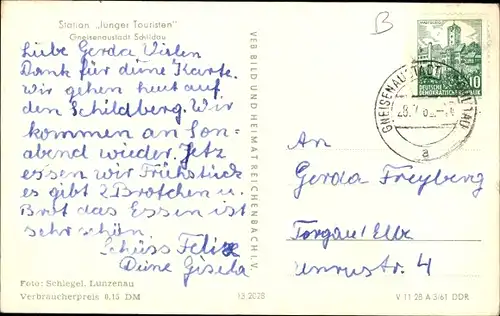 Station „Junger Touristen"
Gneisenaustadt Schildau
Liebe Gerda Vielen
Dank für diine Karte.
Wir gehen heut auf
den Schildberg. Wir
kommen an Son-
abend wieder. Jetz
essen wir Frühstück
es gibt 2 Brötchen u.
Brot das Essen ist
sehr schön.
Schüss Felix
Diine Gisela
Foto: Schlegel, Lunzenau
Verbraucherpreis 0,15 DM
VEB BILD UND HEIMAT REICHENBACH I. V.
13.2028
B
DEUTSCHE
DEMOKRATISCHE REPUBLIK
10
GNEISENAUSTADT SCHILDAU
a
An
Gerda Freyberg
Torgau/Elbe
Unruhstr. 4
V 11 28 A 5/61 DDR